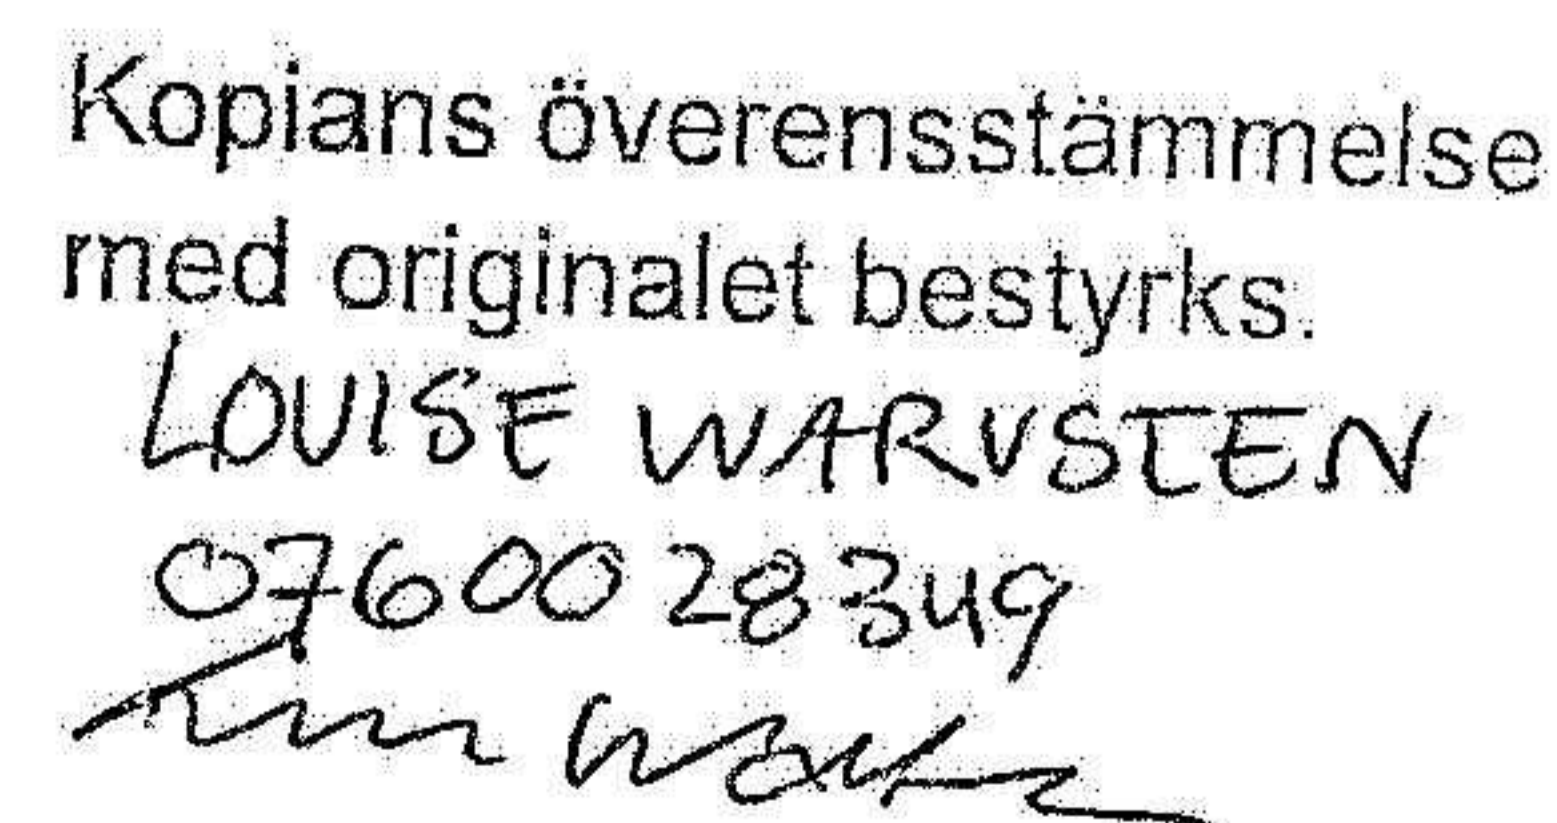 Kopians överensstämmelse
med originalet bestyrks.
LOUISE WARVSTEN
0760028349